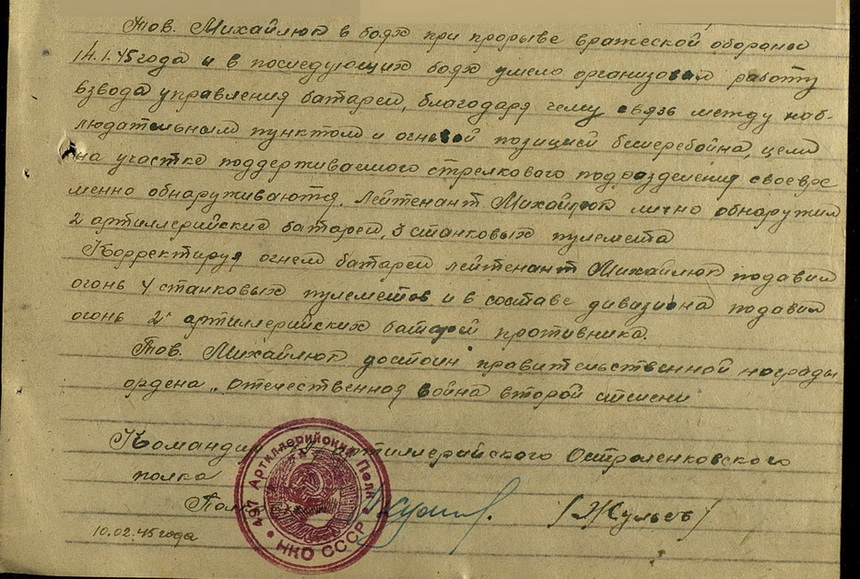 Тов. Михайлюк в боях при прорыве вражеской обороны
14.1.45 года и в последующих боях умело организовал работу
взвода управления батареи, благодаря чему связь между наб-
людательным пунктом и огневой позицией бесперебойна, цели
на участке поддерживаемого стрелкового подразделения своевре
менно обнаруживаются. Лейтенант Михайлюк лично обнаружил
2 артиллерийские батареи, 3 станковых пулемета
Корректируя огнем батареи лейтенант Михайлюк подавил
огонь 4 станковых пулеметов и в составе дивизиона подавил
огонь 2х артиллерийских батарей противника.
Тов. Михайлюк достоин правительственной награды
ордена „Отечественная война второй степени
Командир артиллерийского Остроленковского
полка
10.02.45 года
497 Артиллерийский Полк
НКО СССР